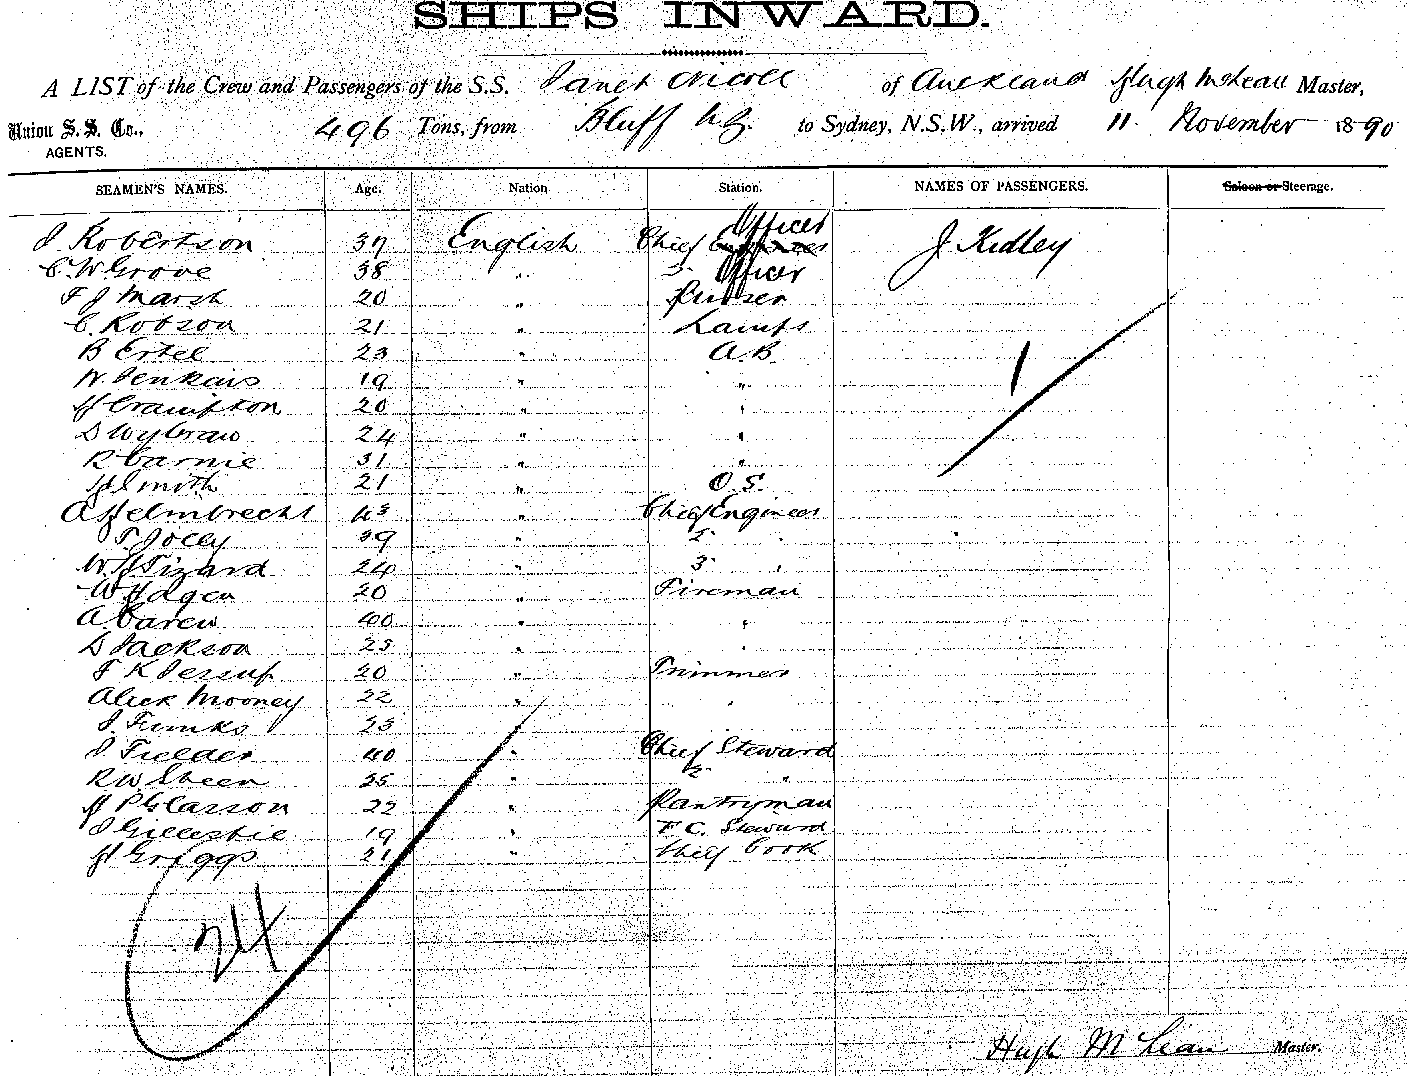 SHIPS INWARD.
A LIST of the Crew and Passengers of the S.S. Janet Nicoll of Auckland Hugh McLean Master,
Union S. S. Co., 496 Tons, from Bluff N.Z. to Sydney, N.S.W., arrived 11 November 1890
AGENTS.
SEAMEN'S NAMES. Age. Nation Station. NAMES OF PASSENGERS. Saloon or Steerage.
J. Robertson 37 English Chief Engineer Officer J. Kidley
C. W Grove 38 " 2 Officer
F J Marsh 20 " Purser
C. Robson 21 " Lamps
B Ertel 23 " A.B. 1
W. Jenkins 19 " "
H Crampton 20 " "
D Wybrow 24 " "
R Carnie 31 " "
H Smith 21 " O.S.
A Helmbrecht 43 " Chief Engineer
T. Jocey 39 " 2 "
W. H Tizard 24 " 3 "
W Hagen 20 " Fireman
A Carew 40 " "
D Jackson 25 " "
F K Jessup 20 " Trimmer
Alick Mooney 22 " "
J. Funks 23 "
J Fielder 40 " Chief Steward
R W Skeen 25 " 2 "
H P Glasson 22 " Pantryman
J Gillespie 19 " F C. Steward
H Griggs 21 " Chief Cook
24
Hugh McLean Master.